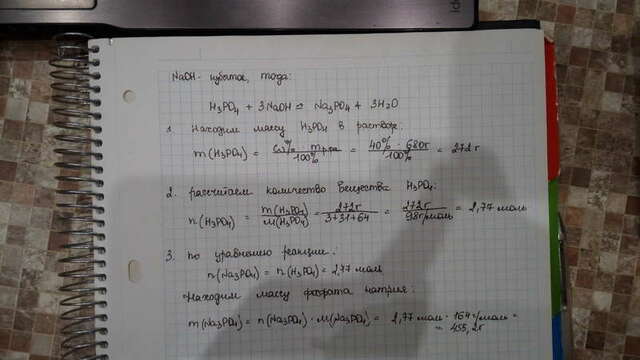 NaOH - избыток, тогда:
H₃PO₄ + 3NaOH = Na₃PO₄ + 3H₂O
1. Находим массу H₃PO₄ в растворе:
m(H₃PO₄) = ω% · m р-ра / 100% = 40% · 680г / 100% = 272 г
2. рассчитаем количество вещества H₃PO₄:
n(H₃PO₄) = m(H₃PO₄) / M(H₃PO₄) = 272г / 3+31+64 = 272г / 98г/моль = 2,77 моль
3. по уравнению реакции:
n(Na₃PO₄) = n(H₃PO₄) = 2,77 моль
Находим массу фосфата натрия:
m(Na₃PO₄) = n(Na₃PO₄) · M(Na₃PO₄) = 2,77 моль · 164 г/моль =
= 455,2г